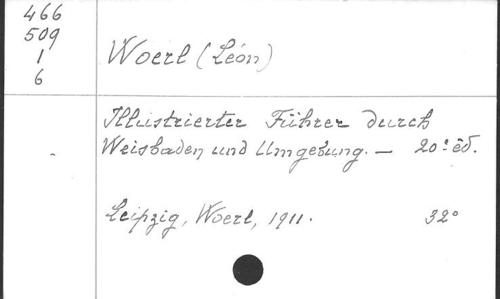 466
509
1
6
Woerl (Léon)
Illustrierter Führer durch
Weisbaden und Umgebung. — 20e éd.
Leipzig, Woerl, 1911.
32o